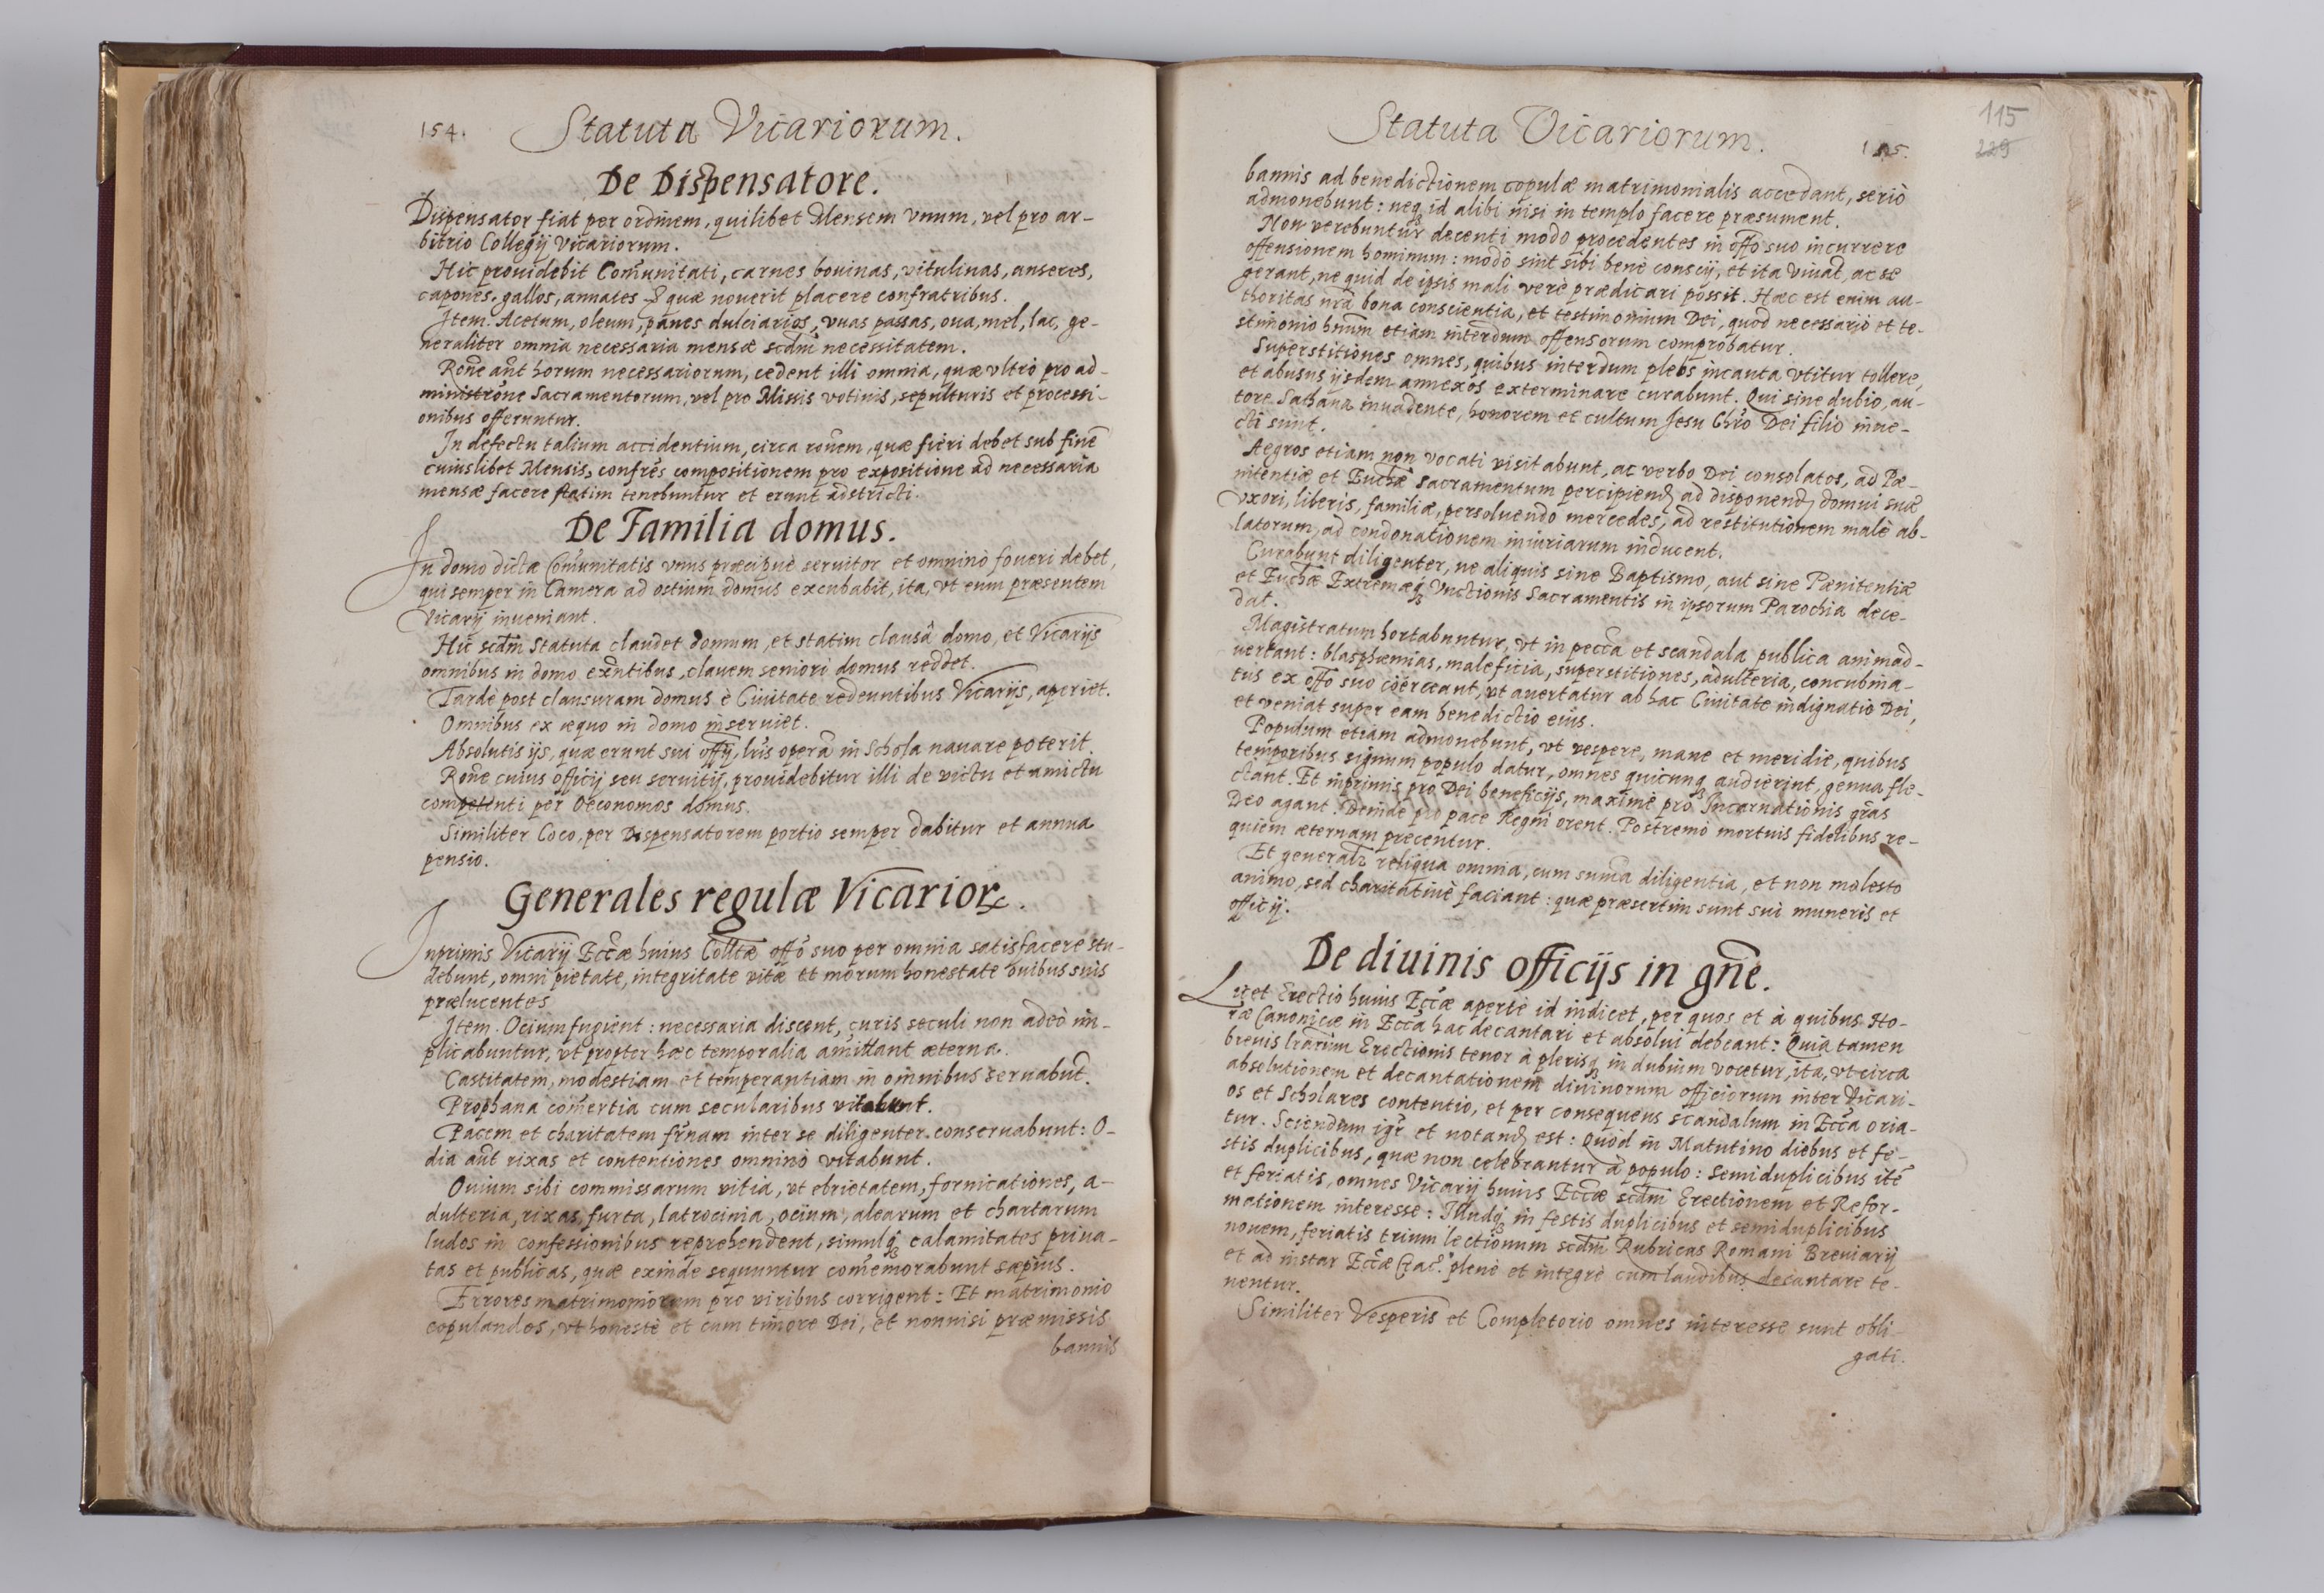 154.
Statuta Vicariorum.
De Dispensatore.
Dispensator fiat per ordinem, quilibet Mensem vnum, vel pro ar-
bitrio Collegij Vicariorum.
Hic prouidebit Com̄unitati, carnes bouinas, vitulinas, anseres,
capones, gallos, annates & quæ nouerit placere confratribus.
Item. Acetum, oleum, panes dulciarios, vuas passas, oua, mel, lac, ge-
neraliter omnia necessaria mensæ scdm̄ necessitatem.
Rōne aūt horum necessariorum, cedent illi omnia, quæ vltrò pro ad-
ministrōne Sacramentorum, vel pro Missis votiuis, sepulturis et processi-
onibus offeruntur.
In defectu talium accidentium, circa rōnem, quæ fieri debet sub finē
cuiuslibet Mensis, confrēs compositionem pro expositione ad necessaria
mensæ facere statim tenebuntur et erunt adstricti.
De Familia domus.
In domo dictæ Com̄unitatis vnus præcipuè seruitor et omninò foueri debet,
qui semper in Camera ad ostium domus excubabit, ita, vt eum præsentem
Vicarij inueniant.
Hic scdm̄ Statuta claudet domum, et statim clausâ domo, et Vicarijs
omnibus in domo exn̄tibus, clauem seniori domus reddet.
Tardè post clausuram domus è Ciuitate redeuntibus Vicarijs, aperiet.
Omnibus ex æquo in domo inseruiet.
Absolutis ijs, quæ erunt sui offij, lr̄is operā in Schola nauare poterit.
Rōne cuius officij seu seruitij, prouidebitur illi de victu et amictu
competenti per Oeconomos domus.
Similiter Coco, per Dispensatorem portio semper dabitur et annua
pensio.
Generales regulæ Vicarioꝝ.
Inprimis Vicarij Eccǣ huius Colltǣ offō suo per omnia satisfacere stu-
debunt, omni pietate, integritate vitæ et morum honestate ouibus suis
prælucentes
Item. Ocium fugient: necessaria discent, curis seculi non adeò im-
plicabuntur, vt propter hæc temporalia amittant æterna.
Castitatem, modestiam et temperantiam in omnibus seruabūt.
Prophana com̄ertia cum secularibus vitabunt.
Pacem et charitatem fr̄nam inter se diligenter conseruabunt: O-
dia aūt rixas et contentiones omninò vitabunt.
Ouium sibi commissarum vitia, vt ebrietatem, fornicationes, a-
dulteria, rixas, furta, latrocinia, ocium, alearum et chartarum
ludos in confessionibus reprehendent, simulq̃ calamitates priua-
tas et publicas, quæ exinde sequuntur com̄emorabunt sæpius.
Errores matrimoniorum pro viribus corrigent: Et matrimonio
copulandos, vt honestè et cum timore Dei, et nonnisi præmissis
bannis
Statuta Vicariorum.
155.
115
229
bannis ad benedictionem copulæ matrimonialis accedant, seriò
admonebunt: neq̃ id alibi nisi in templo facere præsument.
Non verebuntur decenti modo procedentes in offō suo incurrere
offensionem hominum: modò sint sibi benè conscij, et ita viuāt, ac se
gerant, ne quid de ipsis mali verè prædicari possit. Hæc est enim au-
thoritas nr̄a bona conscientia, et testimonium Dei, quod necessariò et te-
stimonio hm̄um etiam interdum offensorum comprobatur.
Superstitiones omnes, quibus interdum plebs incauta vtitur tollere,
et abusus ijsdem annexos exterminare curabunt. Qui sine dubio, au-
tore Sathana inuadente, honorem et cultum Jesu Chr̄o Dei filio inue-
cti sunt.
Aegros etiam non vocati visitabunt, ac verbo Dei consolatos, ad Pæ-
nitentiæ et Euchǣ Sacramentum percipienḍ, ad disponenḍ domui suæ
vxori, liberis, familiæ, persoluendo mercedes, ad restitutionem malè ab-
latorum, ad condonationem iniuriarum inducent.
Curabunt diligenter, ne aliquis sine Baptismo, aut sine Pænitentiæ
et Euchǣ Extremæq̃ Vnctionis Sacramentis in ipsorum Parochia dece-
dat.
Magistratum hortabuntur, vt in peccā et scandala publica animad-
uertant: blasphæmias, maleficia, superstitiones, adulteria, concubina-
tus ex offō suo coërceant, vt auertatur ab hac Ciuitate indignatio Dei,
et veniat super eam benedictio eius.
Populum etiam admonebunt, vt vespere, mane et meridie, quibus
temporibus signum populo datur, omnes quicunq̃ audierint, genua fle-
ctant. Et inprimis pro Dei beneficijs, maximè pro Incarnationis gr̄as
Deo agant. Deinde pro pace Regni orent. Postremò mortuis fidelibus re-
quiem æternam precentur.
Et generalr̄ reliqua omnia, cum sum̄a diligentia, et non molesto
animo, sed charitatiuè faciant: quæ præsertim sunt sui muneris et
officij.
De diuinis officijs in gn̄e.
Licet Erectio huius Eccǣ apertè id indicet, per quos et à quibus Ho-
ræ Canonicæ in Eccā hac decantari et absolui debeant: Quia tamen
breuis lr̄arum Erectionis tenor à plerisq̃ in dubium vocetur, ita, vt circa
absolutionem et decantationem diuinorum officiorum inter Vicari-
os et Scholares contentio, et per consequens scandalum in Eccā oria-
tur. Sciendum igr̄ et notanḍ est: Quòd in Matutino diebus et fe-
stis duplicibus, quæ non celebrantur à populo: semiduplicibus itē
et feriatis, omnes Vicarij huius Eccǣ scdm̄ Erectionem et Refor-
mationem interesse: Illudq̃ in festis duplicibus et semiduplicibus
nouem, feriatis trium lectionum scdm̄ Rubricas Romani Breuiarij
et ad instar Eccǣ Crac. plenè et integrè cum laudibus decantare te-
nentur.
Similiter Vesperis et Completorio omnes interesse sunt obli-
gati.